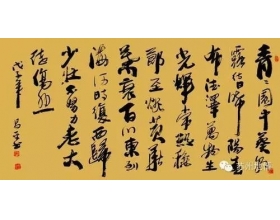 青々園中葵朝
露待日晞陽春
布德澤萬物生
光輝常恐秋
節至焜黃華
葉衰百川東到
海何時復西歸
少壯不努力老大
徒傷悲
戊子年